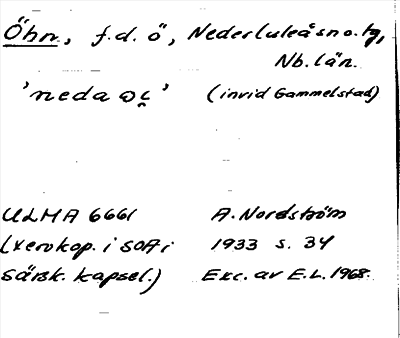 Öhn, f.d. ö, Nederluleå sn o. tg,
Nb. län.
(invid Gammelstad)
ULMA 6661 A. Nordström
(xerokop. i SOA i 1933 s. 34
särsk. kapsel.) Exc. av E.L. 1968.